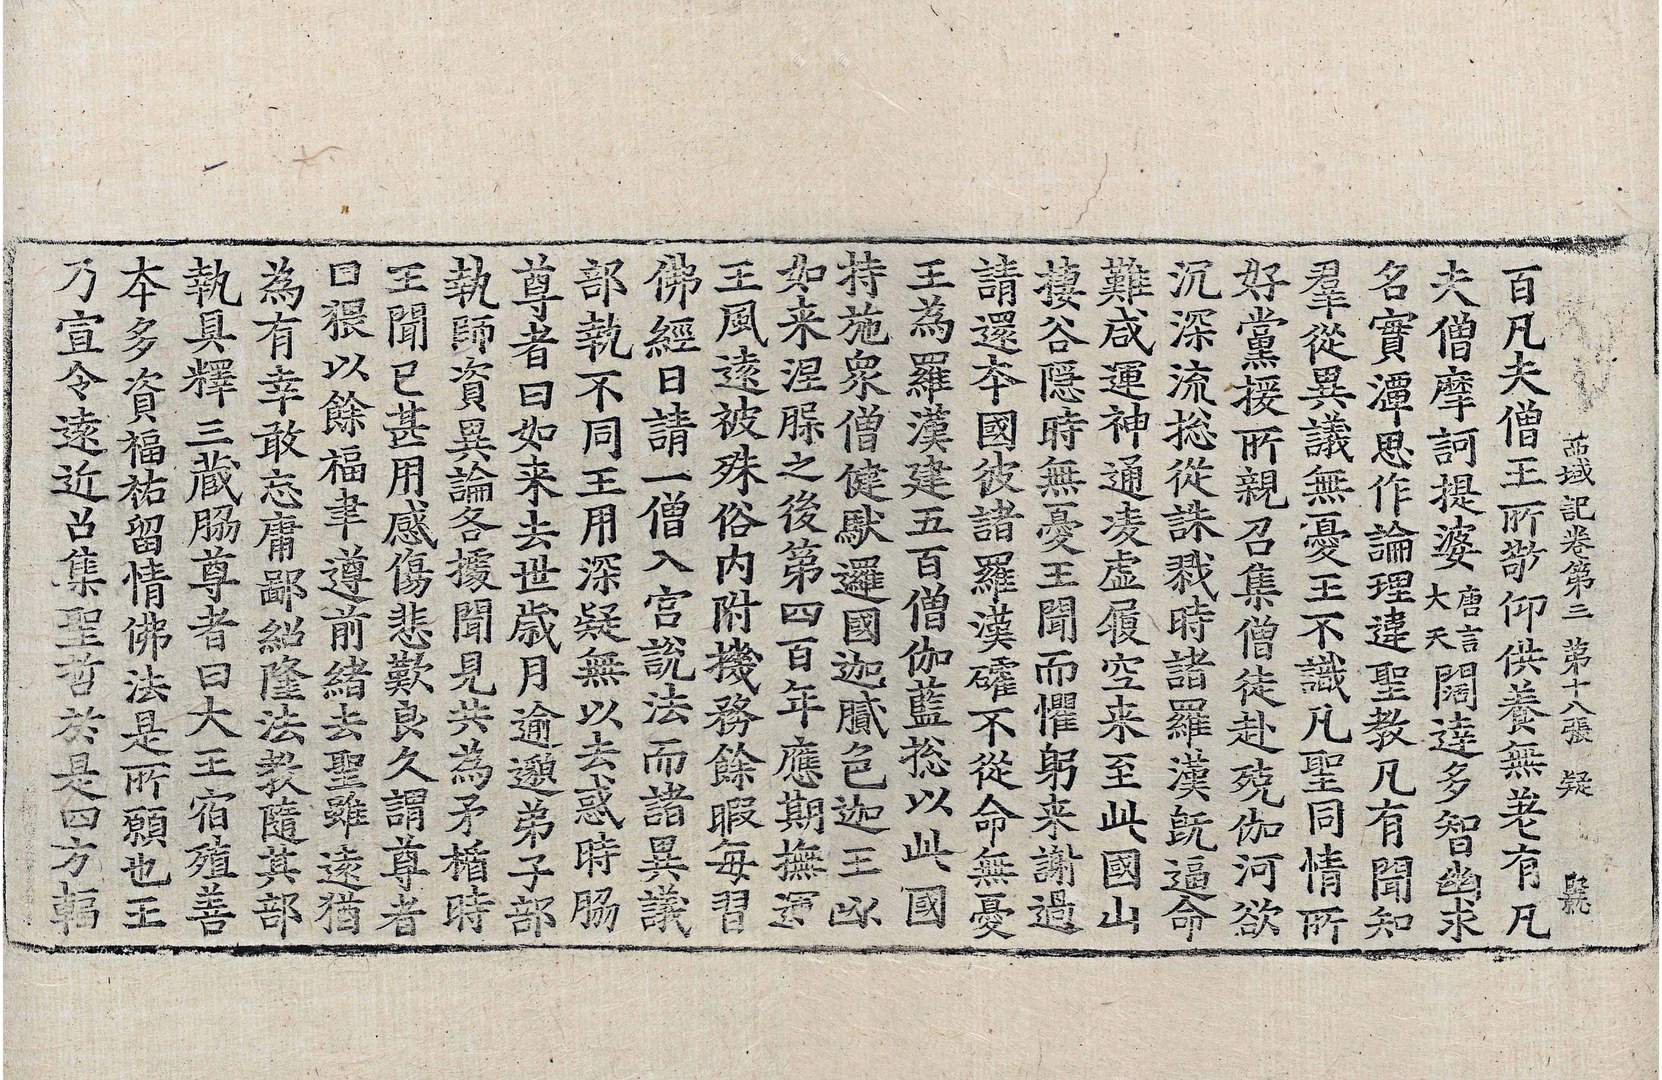 西域記卷第三 第十八張 疑
百凡夫僧王所敬仰供養無差有凡
夫僧摩訶提婆唐言大天闊達多智幽求
名實潭思作論理違聖教凡有聞知
羣從異議無憂王不識凡聖同情所
好黨援所親召集僧徒赴殑伽河欲
沉深流捴從誅戮時諸羅漢旣逼命
難咸運神通凌虛履空来至此國山
棲谷隱時無憂王聞而懼躬来謝過
請還本國彼諸羅漢確不從命無憂
王為羅漢建五百僧伽藍捴以此國
持施衆僧健馱邏國迦膩色迦王以
如来涅槃之後第四百年應期撫運
王風遠被殊俗内附機務餘暇每習
佛經日請一僧入宮說法而諸異議
部執不同王用深疑無以去惑時脇
尊者曰如来去世歲月逾邈弟子部
執師資異論各據聞見共為矛楯時
王聞已甚用感傷悲歎良久謂尊者
曰猥以餘福聿遵前緒去聖雖遠猶
為有幸敢忘庸鄙紹隆法教隨其部
執具釋三藏脇尊者曰大王宿殖善
本多資福祐留情佛法是所願也王
乃宣令遠近召集聖哲於是四方輻